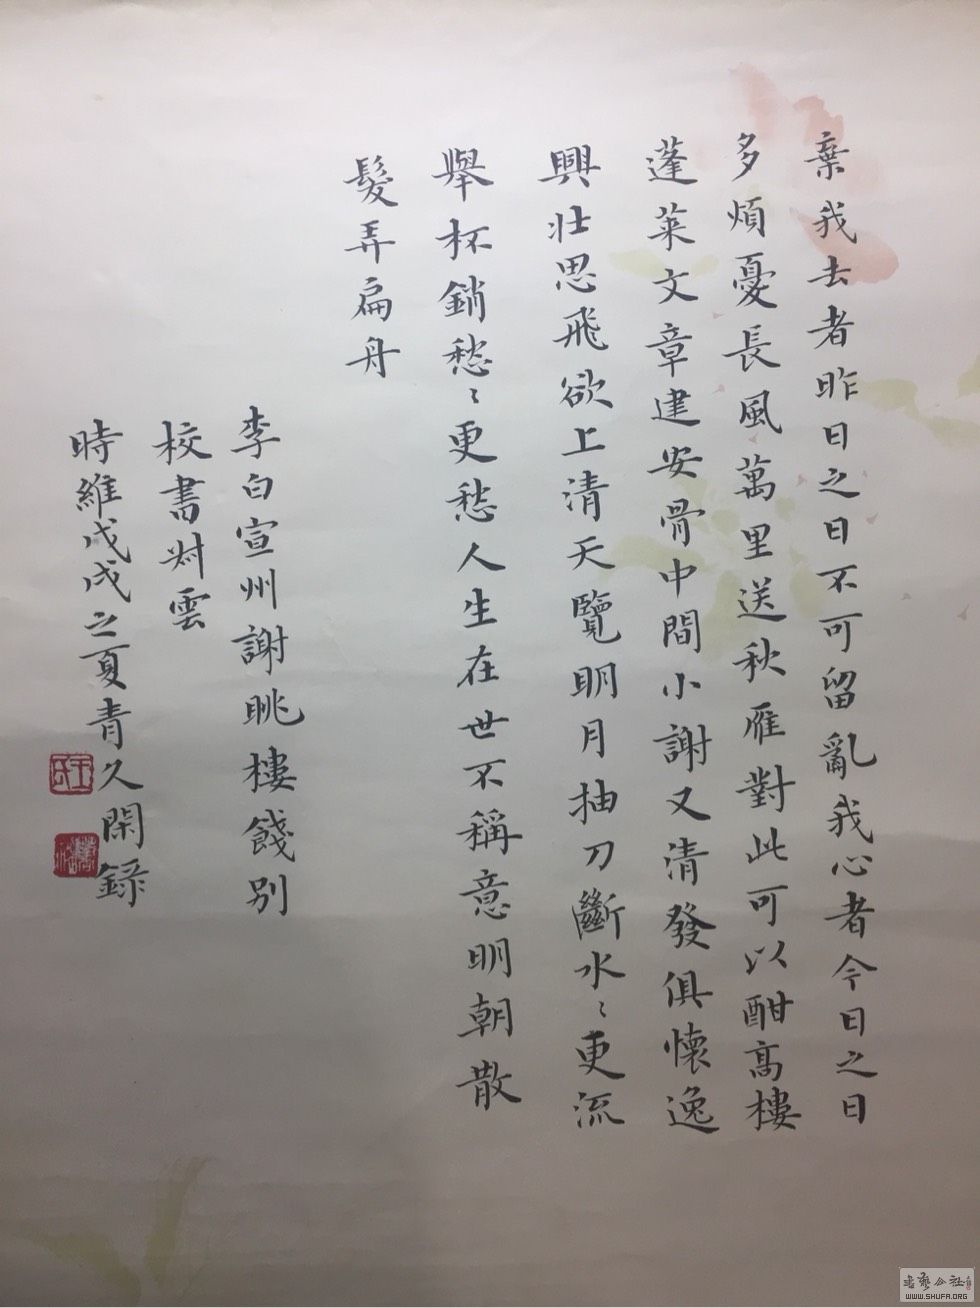 棄我去者昨日之日不可留亂我心者今日之日
多煩憂長風萬里送秋雁對此可以酣高樓
蓬萊文章建安骨中間小謝又清發俱懷逸
興壯思飛欲上清天覽明月抽刀斷水〻更流
舉杯銷愁〻更愁人生在世不稱意明朝散
髮弄扁舟
李白宣州謝朓樓餞別
校書叔雲
時維戊戌之夏青久閑錄
王氏
書藝公社
WWW.SHUFA.ORG